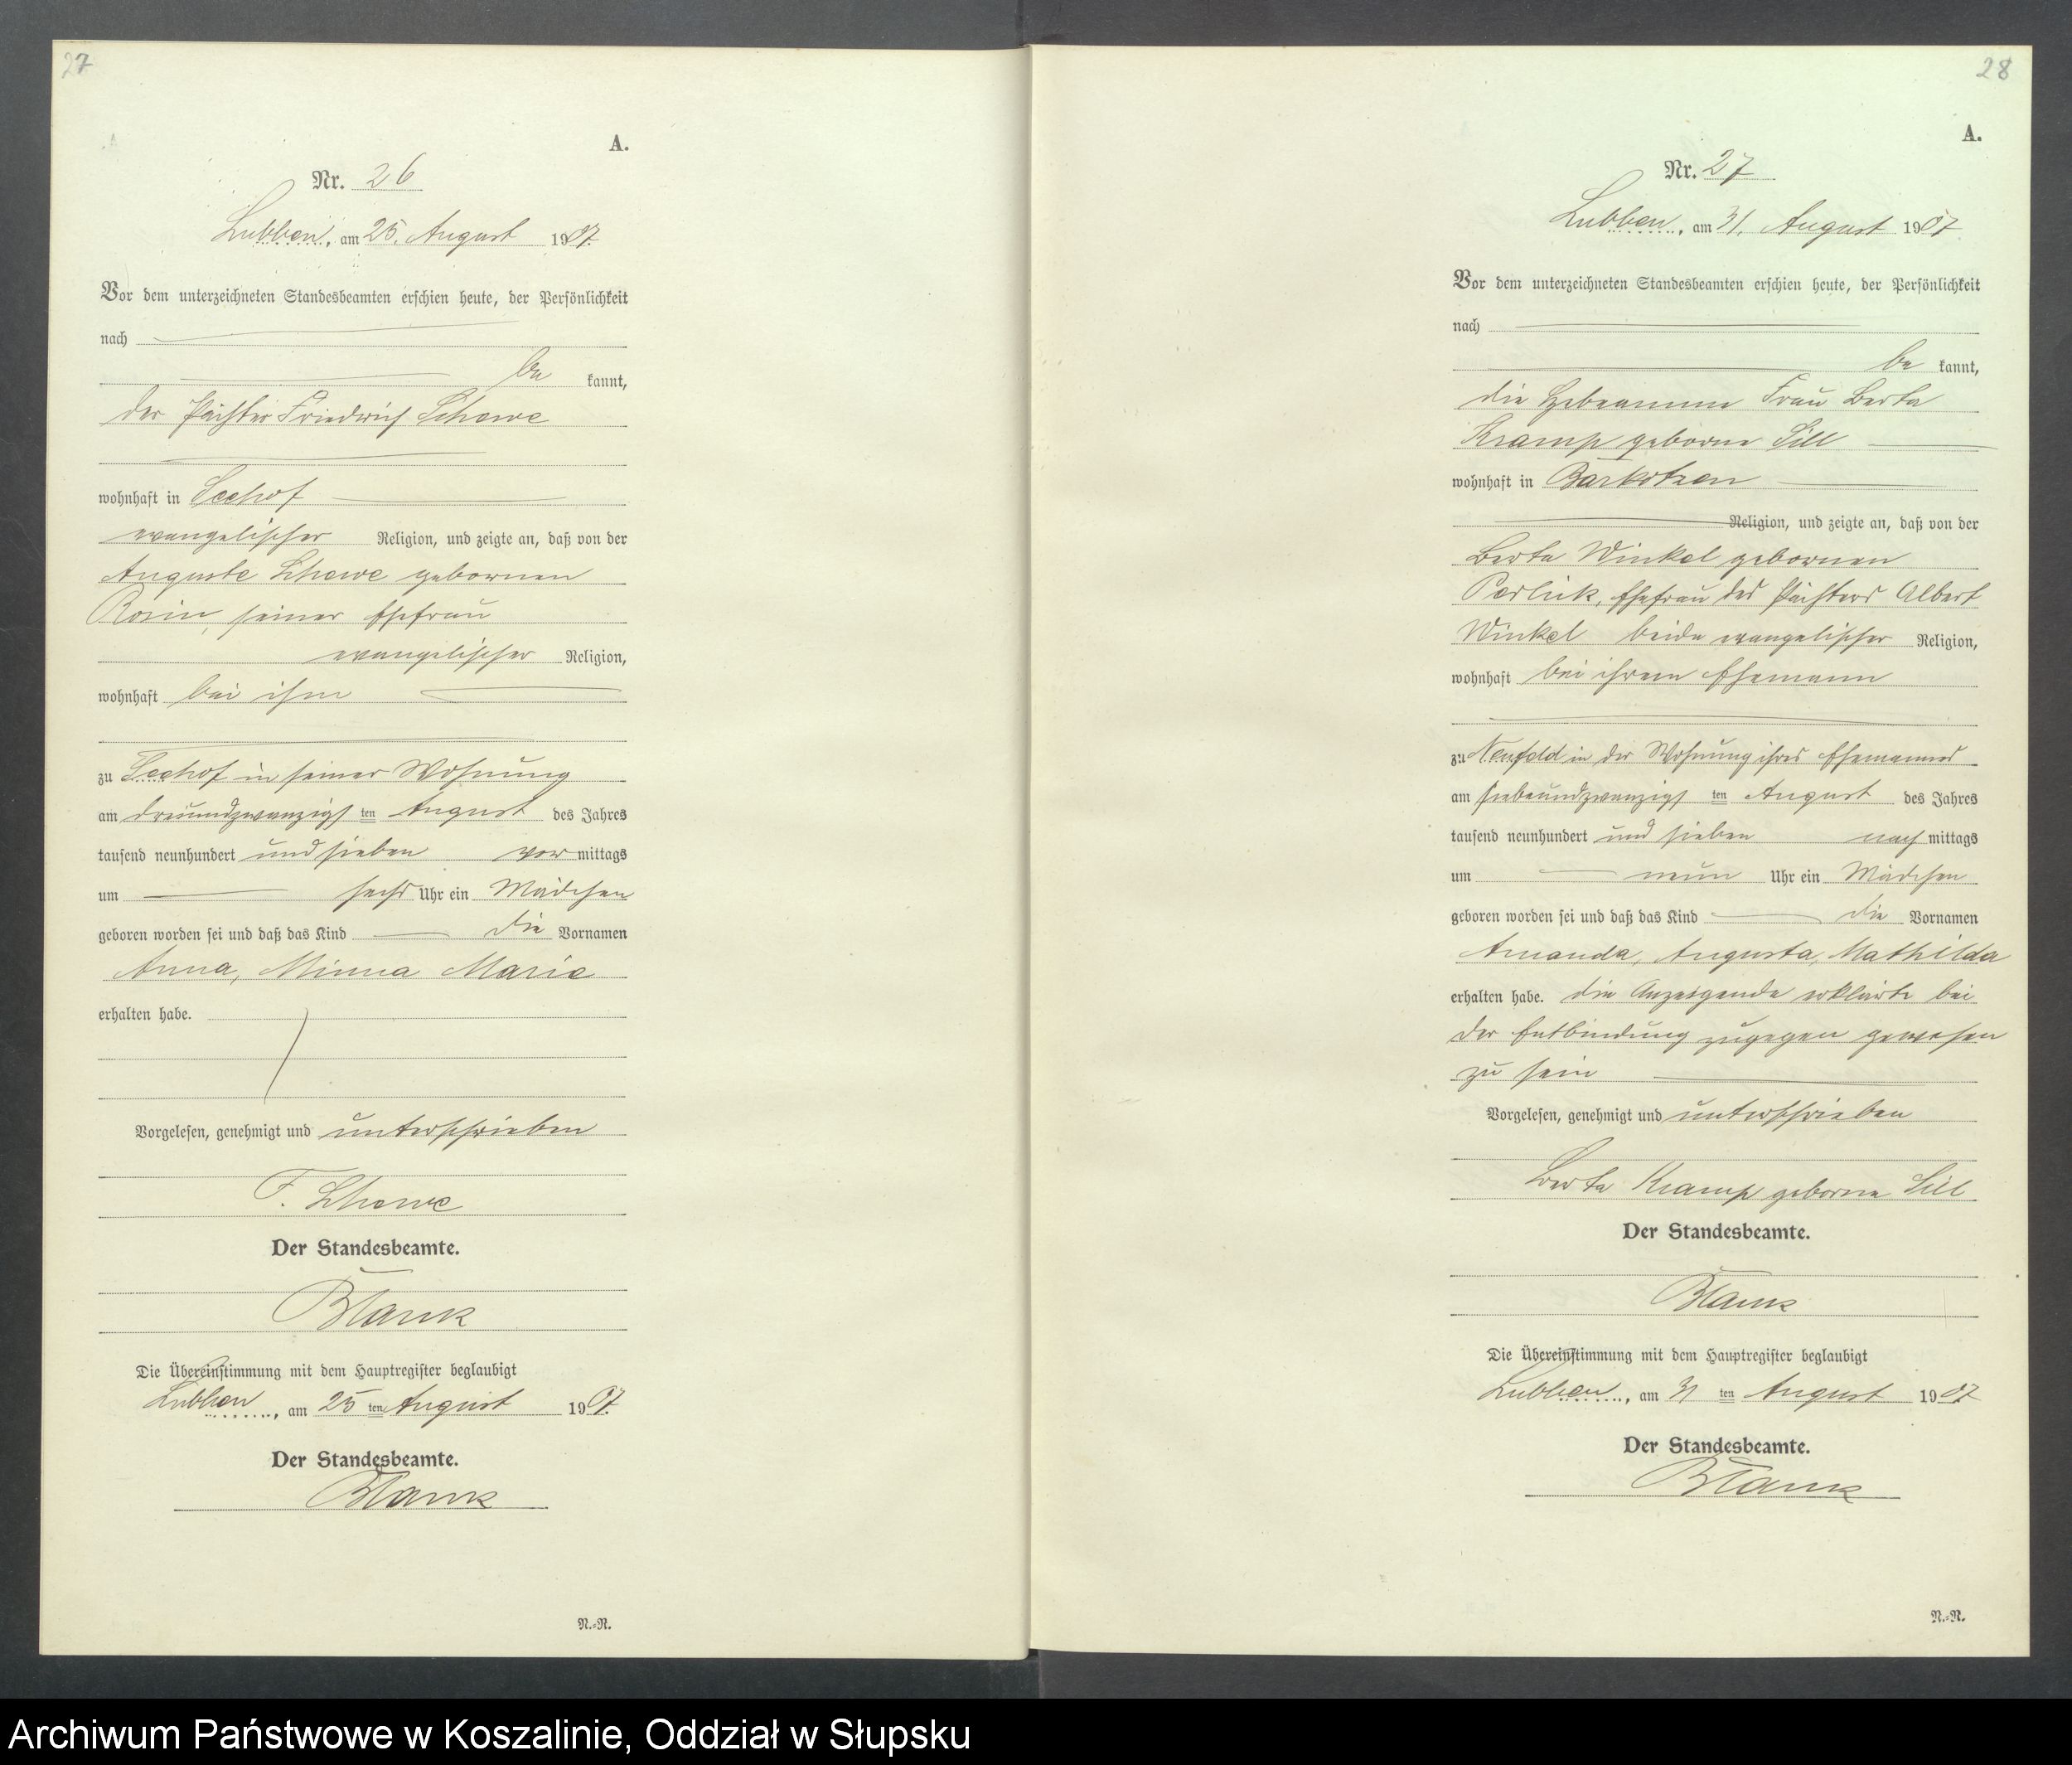 27
A.
Nr. 26
Lubben, am 25. August 1907.
Vor dem unterzeichneten Standesbeamten erschien heute, der Persönlichkeit
nach
be kannt,
der Pächter Friedrich
wohnhaft in Seehof
evangelischer Religion, und zeigte an, daß von der
Auguste gebornen
Rosin, seiner Ehefrau
evangelischer Religion,
wohnhaft bei ihm
zu Seehof in seiner Wohnung
am dreiundzwanzigs ten August des Jahres
tausend neunhundert und sieben vor mittags
um sechs Uhr ein Mädchen
geboren worden sei und daß das Kind die Vornamen
Anna, Minna Marie
erhalten habe.
Vorgelesen, genehmigt und unterschrieben
F.
Der Standesbeamte.
Blank
Die Übereinstimmung mit dem Hauptregister beglaubigt
Lubben, am 25 ten August 1907.
Der Standesbeamte.
Blank
N.=R.
28
A.
Nr. 27
Lubben, am 31. August 1907
Vor dem unterzeichneten Standesbeamten erschien heute, der Persönlichkeit
nach
be kannt,
die Hebeamme Frau Berta
Kramp geborne Sill
wohnhaft in Barkotzen
Religion, und zeigte an, daß von der
Berta Winkel gebornen
Perlick, Ehefrau des Pächters Albert
Winkel beide evangelischer Religion,
wohnhaft bei ihrem Ehemann
zu Neufeld in der Wohnung ihres Ehemannes
am siebeundzwanzigs ten August des Jahres
tausend neunhundert und sieben nach mittags
um neun Uhr ein Mädchen
geboren worden sei und daß das Kind die Vornamen
Amanda, Augusta, Mathilda
erhalten habe. die Anzeigende erklärte bei
der Entbindung zugegen gewesen
zu sein
Vorgelesen, genehmigt und unterschrieben
Berta Kramp geborne Sill
Der Standesbeamte.
Blank
Die Übereinstimmung mit dem Hauptregister beglaubigt
Lubben, am 31 ten August 1907
Der Standesbeamte.
Blank
N.=R.
Archiwum Państwowe w Koszalinie, Oddział w Słupsku